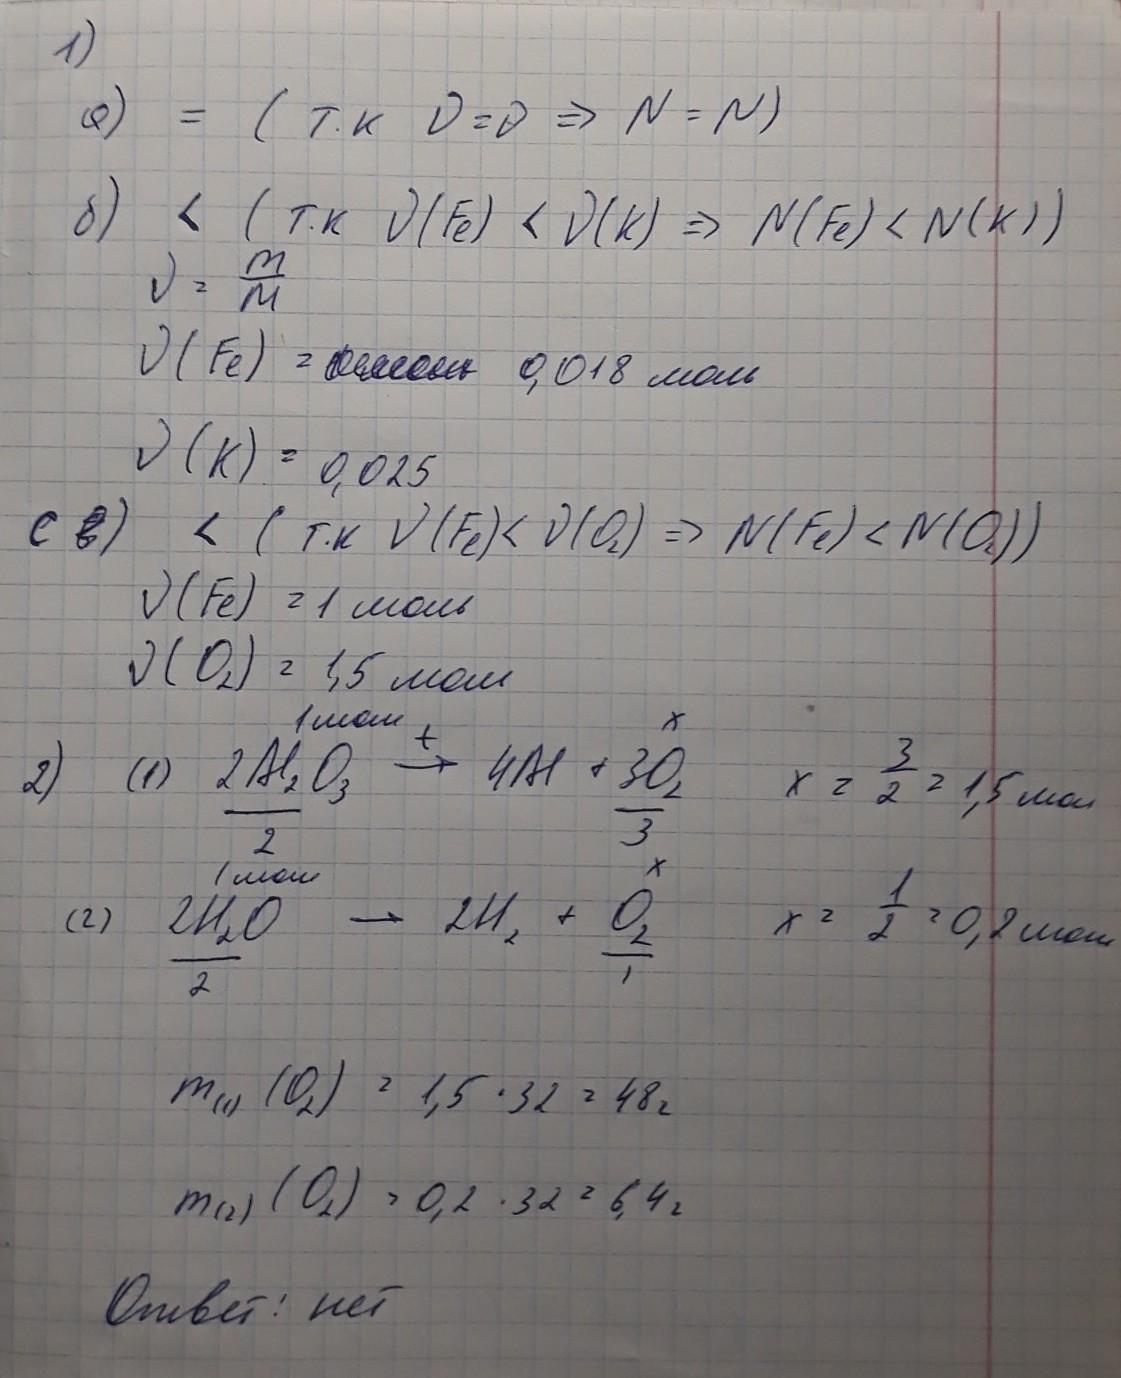 1)
а) = ( т.к ν=ν => N = N)
б) < ( т.к ν(Fe) < ν(K) => N(Fe) < N(K))
ν = m/M
ν(Fe) = 0,018 моль
ν(K) = 0,025
с в) < ( т.к ν(Fe) < ν(O₂) => N(Fe) < N(O₂))
ν(Fe) = 1 моль
ν(O₂) = 1,5 моль
1 моль t x
2) (1) 2Al₂O₃ → 4Al + 3O₂ x = 3/2 = 1,5 моль
2 3
1 моль x
(2) 2H₂O → 2H₂ + O₂ x = 1/2 = 0,2 моль
2 1
m₍₁₎(O₂) = 1,5 · 32 = 48г
m₍₂₎(O₂) = 0,2 · 32 = 6,4г
Ответ: нет